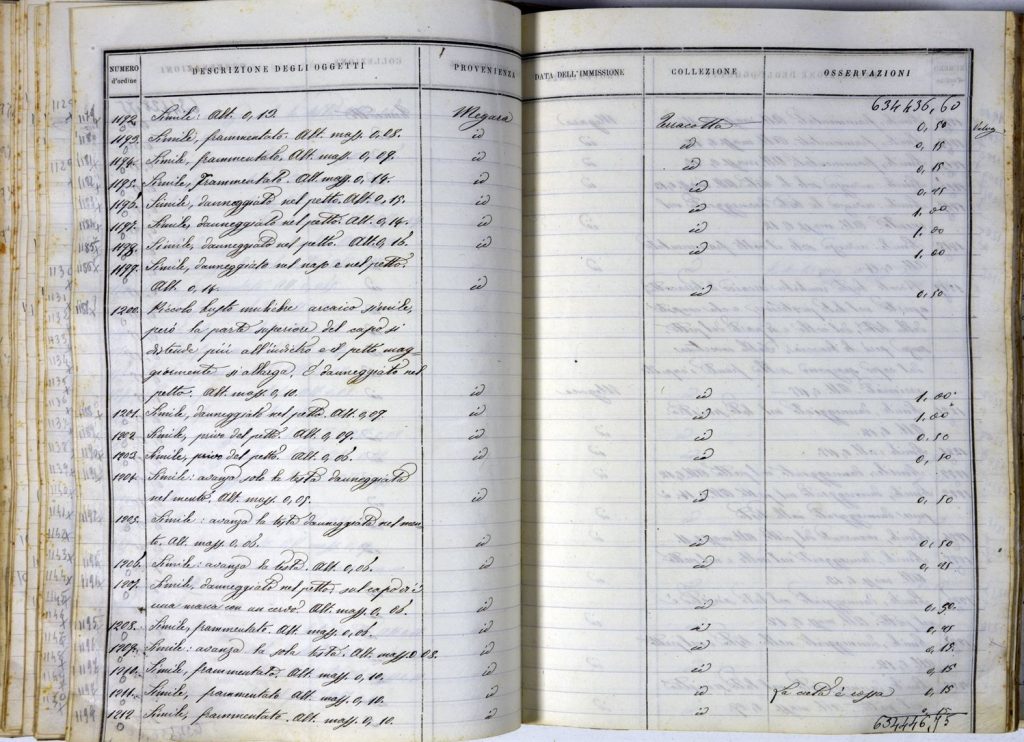 NUMERO d'ordine DESCRIZIONE DEGLI OGGETTI PROVENIENZA DATA DELL'IMMISSIONE COLLEZIONE OSSERVAZIONI
634436,60
1192. Simile: Alt. 0,13. Megara Terracotta 0,50
1193. Simile, frammentato. Alt. mass. 0,08. id id 0,15
1194. Simile, frammentato. Alt. mass. 0,09. id id 0,15
1195. Simile, frammentato. Alt. mass. 0,14. id id 0,45
1196. Simile, danneggiato nel petto. Alt. 0,15. id id 1.00
1197. Simile, danneggiato nel petto. Alt. 0,14. id id 1.00
1198. Simile, danneggiato nel petto. Alt. 0,16. id id 1.00
1199. Simile, danneggiato nel naso e nel petto.
Alt. 0,14. id id 0,50
1200. Piccolo busto muliebre arcaico simile,
però la parte superiore del capo si
distende più all'indietro e il petto mag-
giormente si allarga. È danneggiato nel
petto. Alt. mass. 0,10. id id 1.00
1201. Simile, danneggiato nel petto. Alt. 0,09. id id 1.00
1202. Simile, privo del petto. Alt. 0,09. id id 0,50
1203. Simile, privo del petto. Alt. 0,06. id id 0,50
1204. Simile: avanza solo la testa danneggiata
nel mento. Alt. mass. 0,05. id id 0,50
1205. Simile: avanza la testa danneggiata nel men-
to. Alt. mass. 0,06. id id 0,50
1206. Simile: avanza la testa. Alt. 0,06. id id 0,45
1207. Simile, danneggiato nel petto: sul capo vi è
una mano con un Alt. mass. 0,06. id id 0,50
1208. Simile, frammentato. Alt. mass. 0,06. id id 0,45
1209. Simile: avanza la sola testa. Alt. mass. 0,08. id id 0,15
1210. Simile, frammentato. Alt. mass. 0,10. id id 0,15
1211. Simile, frammentato. Alt. mass. 0,10. id id La creta è rossa 0,15
1212 Simile, frammentato. Alt. mass. 0,10. id id 0,15
634446,75